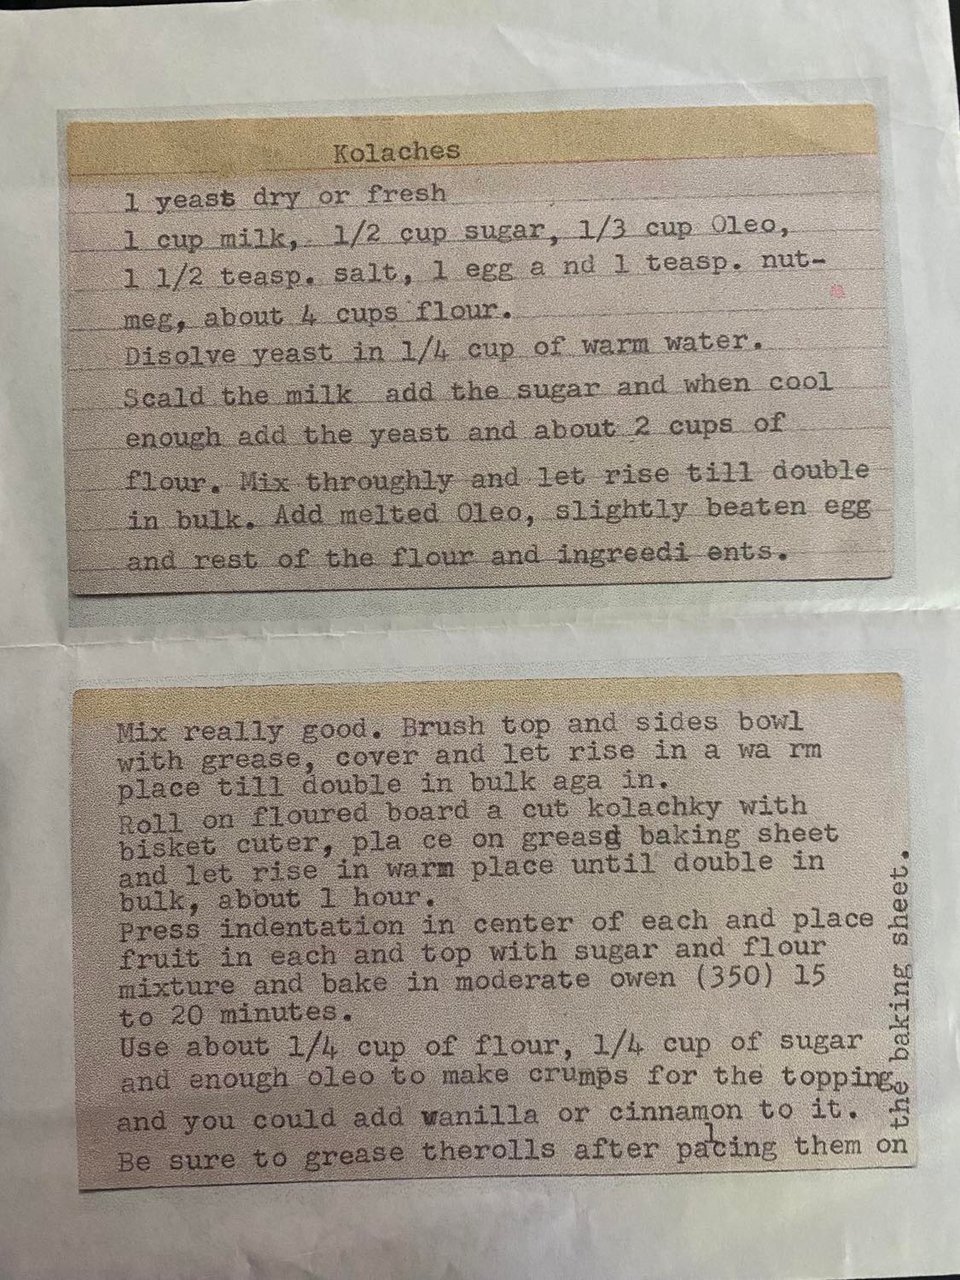 Kolaches
1 yeast dry or fresh
1 cup milk, 1/2 cup sugar, 1/3 cup Oleo,
1 1/2 teasp. salt, 1 egg a nd 1 teasp. nut-
meg, about 4 cups flour.
Disolve yeast in 1/4 cup of warm water.
Scald the milk add the sugar and when cool
enough add the yeast and about 2 cups of
flour. Mix throughly and let rise till double
in bulk. Add melted Oleo, slightly beaten egg
and rest of the flour and ingreedi ents.
Mix really good. Brush top and sides bowl
with grease, cover and let rise in a wa rm
place till double in bulk aga in.
Roll on floured board a cut kolachky with
bisket cuter, pla ce on greasd baking sheet
and let rise in warm place until double in
bulk, about 1 hour.
Press indentation in center of each and place
fruit in each and top with sugar and flour
mixture and bake in moderate owen (350) 15
to 20 minutes.
Use about 1/4 cup of flour, 1/4 cup of sugar
and enough oleo to make crumps for the topping
and you could add vanilla or cinnamon to it.
Be sure to grease therolls after placing them on
the baking sheet.